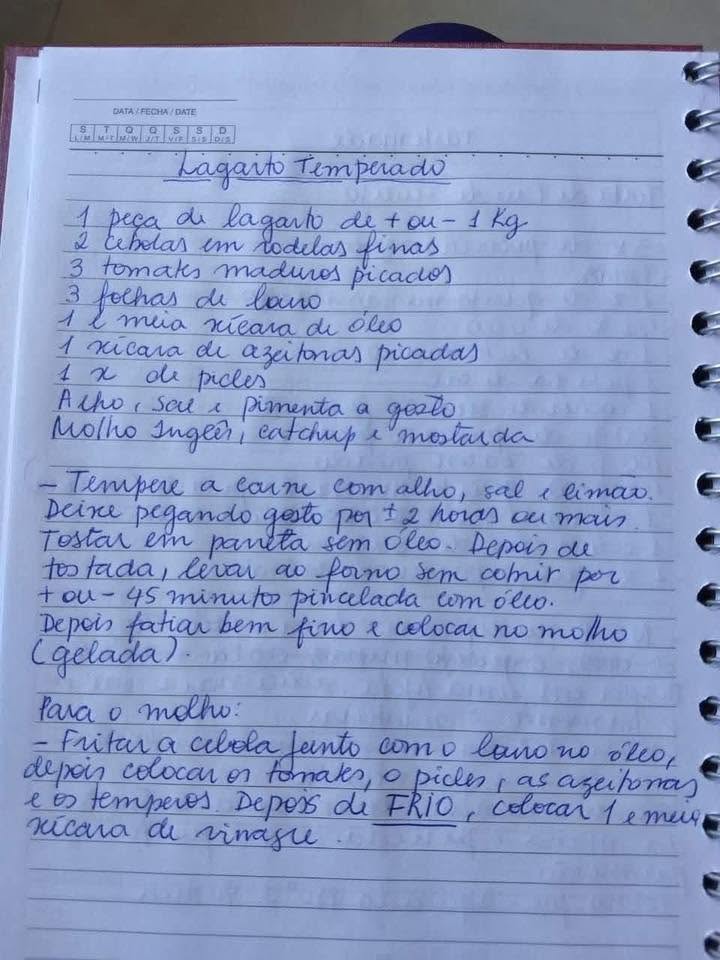 DATA / FECHA / DATE
S T Q Q S S D
L/M M/T M/W J/T V/F S/S D/S
Lagarto Temperado
1 peça de lagarto de + ou - 1 Kg
2 cebolas em rodelas finas
3 tomates maduros picados
3 folhas de louro
1 e meia xícara de óleo
1 xícara de azeitonas picadas
1 x de picles
Alho, sal e pimenta a gosto
Molho Inglês, catchup e mostarda
- Tempere a carne com alho, sal e limão.
Deixe pegando gosto por ± 2 horas ou mais.
Tostar em panela sem óleo. Depois de
tostada, levar ao forno sem cobrir por
+ ou - 45 minutos pincelada com óleo.
Depois fatiar bem fino e colocar no molho
(gelada).
Para o molho:
- Fritar a cebola junto com o louro no óleo,
depois colocar os tomates, o picles, as azeitonas
e os temperos. Depois de FRIO, colocar 1 e meia
xícara de vinagre.